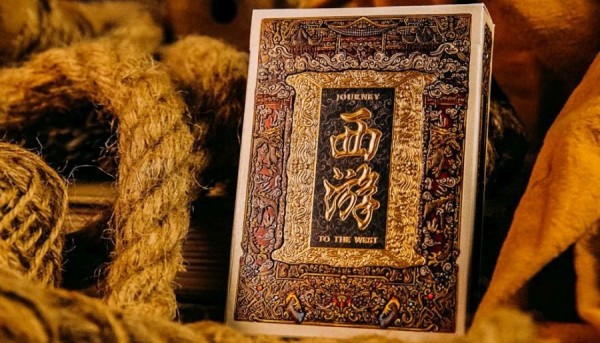 JOURNEY
西
游
TO THE WEST